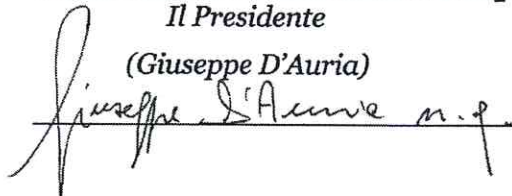 Il Presidente
(Giuseppe D'Auria)
Giuseppe D'Auria n.q.